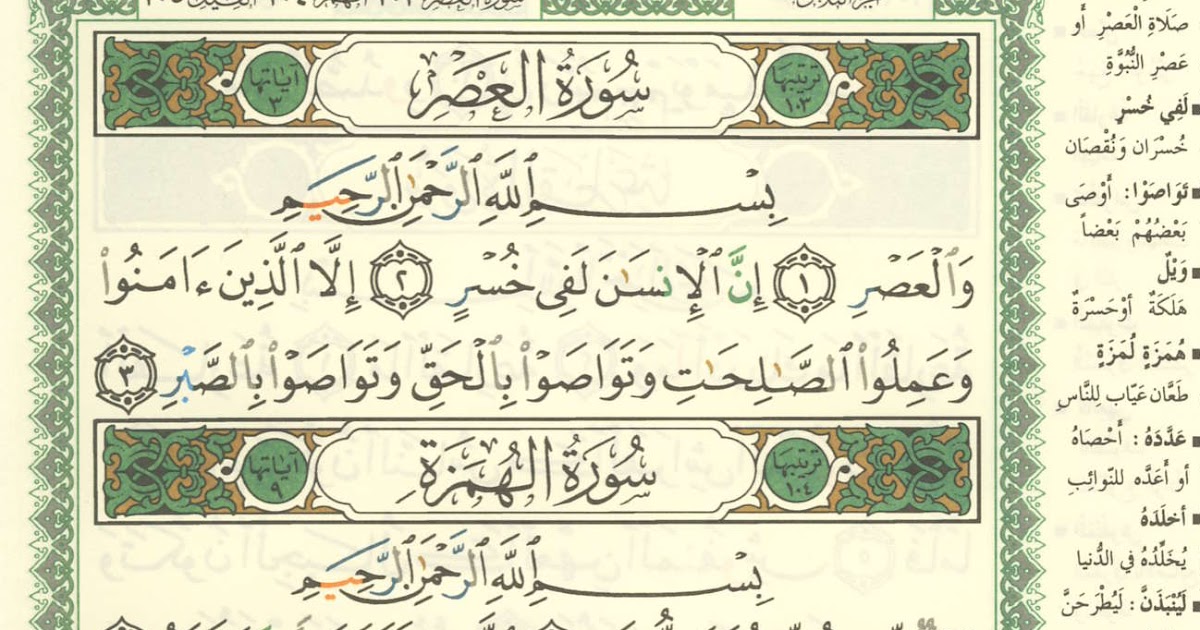 سُورَةُ العَصْرِ
ترتيبها ١٠٣
آياتها ٣
بِسْمِ ٱللَّهِ ٱلرَّحْمَٰنِ ٱلرَّحِيمِ
وَٱلْعَصْرِ ١ إِنَّ ٱلْإِنسَٰنَ لَفِى خُسْرٍ ٢ إِلَّا ٱلَّذِينَ ءَامَنُوا۟
وَعَمِلُوا۟ ٱلصَّٰلِحَٰتِ وَتَوَاصَوْا۟ بِٱلْحَقِّ وَتَوَاصَوْا۟ بِٱلصَّبْرِ ٣
سُورَةُ الهُمَزَةِ
ترتيبها ١٠٤
آياتها ٩
بِسْمِ ٱللَّهِ ٱلرَّحْمَٰنِ ٱلرَّحِيمِ
صَلَاةِ الْعَصْرِ أَو
عَصْرِ النُّبُوَّةِ
لَفِي خُسْرٍ
خُسْرَان وَنُقْصَان
تَوَاصَوْا : أَوْصَى
بَعْضُهُمْ بَعْضاً
وَيْلٌ
هَلَكَةٌ أَوْحَسْرَةٌ
هُمَزَةٍ لُمَزَةٍ
طَعَّان عَيَّاب لِلنَّاسِ
عَدَّدَهُ : أَحْصَاهُ
أو أَعَدَّه للنّوائِبِ
أخلَدَهُ
يُخَلِّدُهُ في الدُّنيا
لَيُنْبَذَنَّ : لَيُطْرَحَنَّ